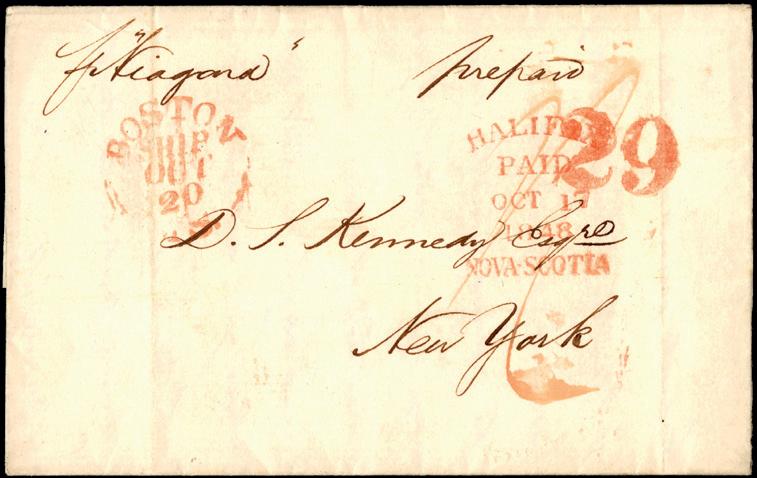 pr "Niagara"
prepaid
BOSTON
SHIP
OCT
20
HALIFAX
PAID
OCT 17
1848
NOVA·SCOTIA
29
D. S. Kennedy Esqre
New York